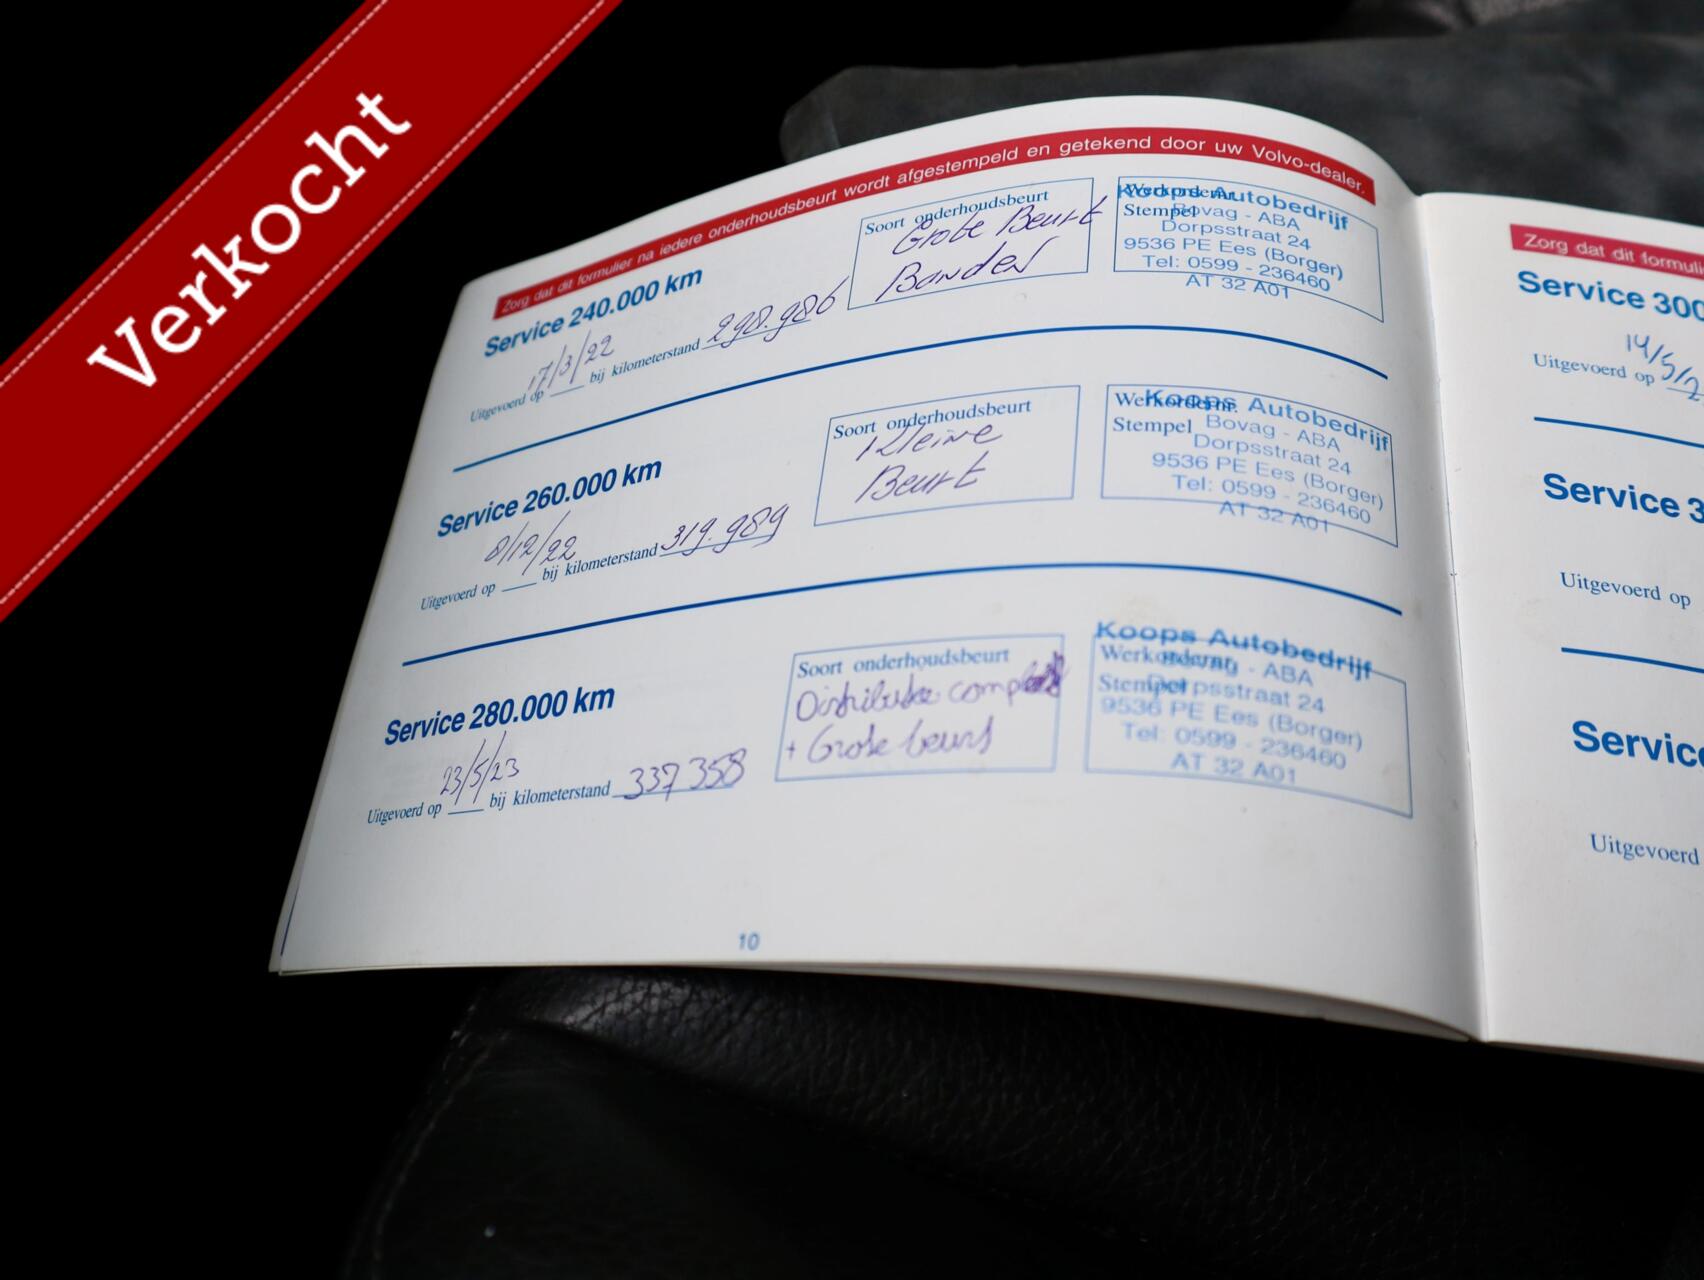 Verkocht
Zorg dat dit formulier na iedere onderhoudsbeurt wordt afgestempeld en getekend door uw Volvo-dealer.
Service 240.000 km
17/3/22
Uitgevoerd op ____ bij kilometerstand 298.986
Soort onderhoudsbeurt
Grote Beurt
Banden
Koops Autobedrijf
Werkordernr.
Stempel
Bovag - ABA
Dorpsstraat 24
9536 PE Ees (Borger)
Tel: 0599 - 236460
AT 32 A01
Service 260.000 km
8/12/22
Uitgevoerd op ____ bij kilometerstand 319.989
Soort onderhoudsbeurt
Kleine
Beurt
Koops Autobedrijf
Werkordernr.
Stempel
Bovag - ABA
Dorpsstraat 24
9536 PE Ees (Borger)
Tel: 0599 - 236460
AT 32 A01
Service 280.000 km
23/5/23
Uitgevoerd op ____ bij kilometerstand 337358
Soort onderhoudsbeurt
Distributie
+ Grote beurt
Koops Autobedrijf
Werkordernr.
Bovag - ABA
Stempel
Dorpsstraat 24
9536 PE Ees (Borger)
Tel: 0599 - 236460
AT 32 A01
10
Zorg dat dit formuli
Service 300
14/5/2
Uitgevoerd op
Service 3
Uitgevoerd op
Servic
Uitgevoerd